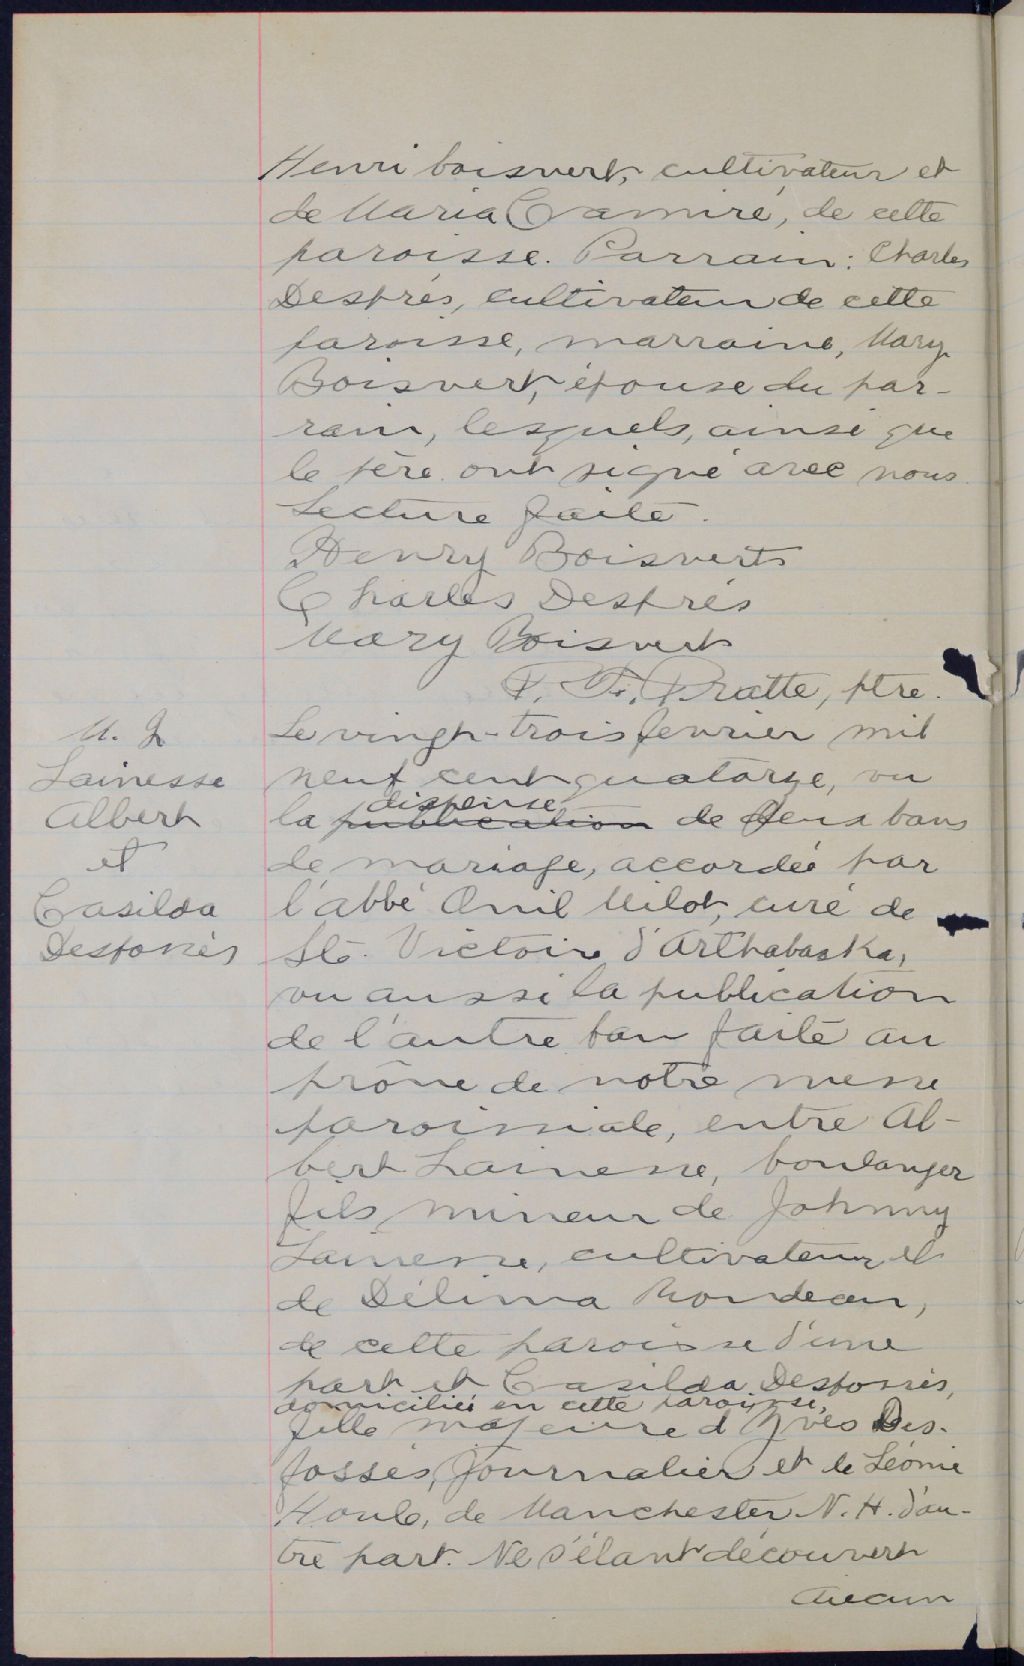 Henri boisvert, cultivateur et
de Maria Camiré, de cette
paroisse. Parrain: Charles
Després, cultivateur de cette
paroisse, marraine, Mary
Boisvert, épouse du par-
rain, lesquels, ainsi que
le père ont signé avec nous.
Lecture faite.
Henry Boisverts
Charles Després
Mary Boisvert
P. F. Pratte, ptre.
M. 2
Lainesse
Albert
et
Casilda
Desfossés
Le vingt-trois fevrier mil
neuf cent quatorze, vu
dispense
la publication de deux bans
de mariage, accordée par
l'abbé Onil Milot, curé de
Ste. Victoire d'Arthabaska,
vu aussi la publication
de l'autre ban faite au
prône de notre messe
paroissiale, entre Al-
bert Lainesse, boulanger
fils mineur de Johnny
Lainesse, cultivateur et
de Délima Rondeau,
de cette paroisse d'une
part et Casilda Desfossés,
domiciliée en cette paroisse,
fille majeure d'Yves Des-
fossés, journalier et de Léonie
Houle, de Manchester N. H. d'au-
tre part. Ne s'étant découvert
aucun